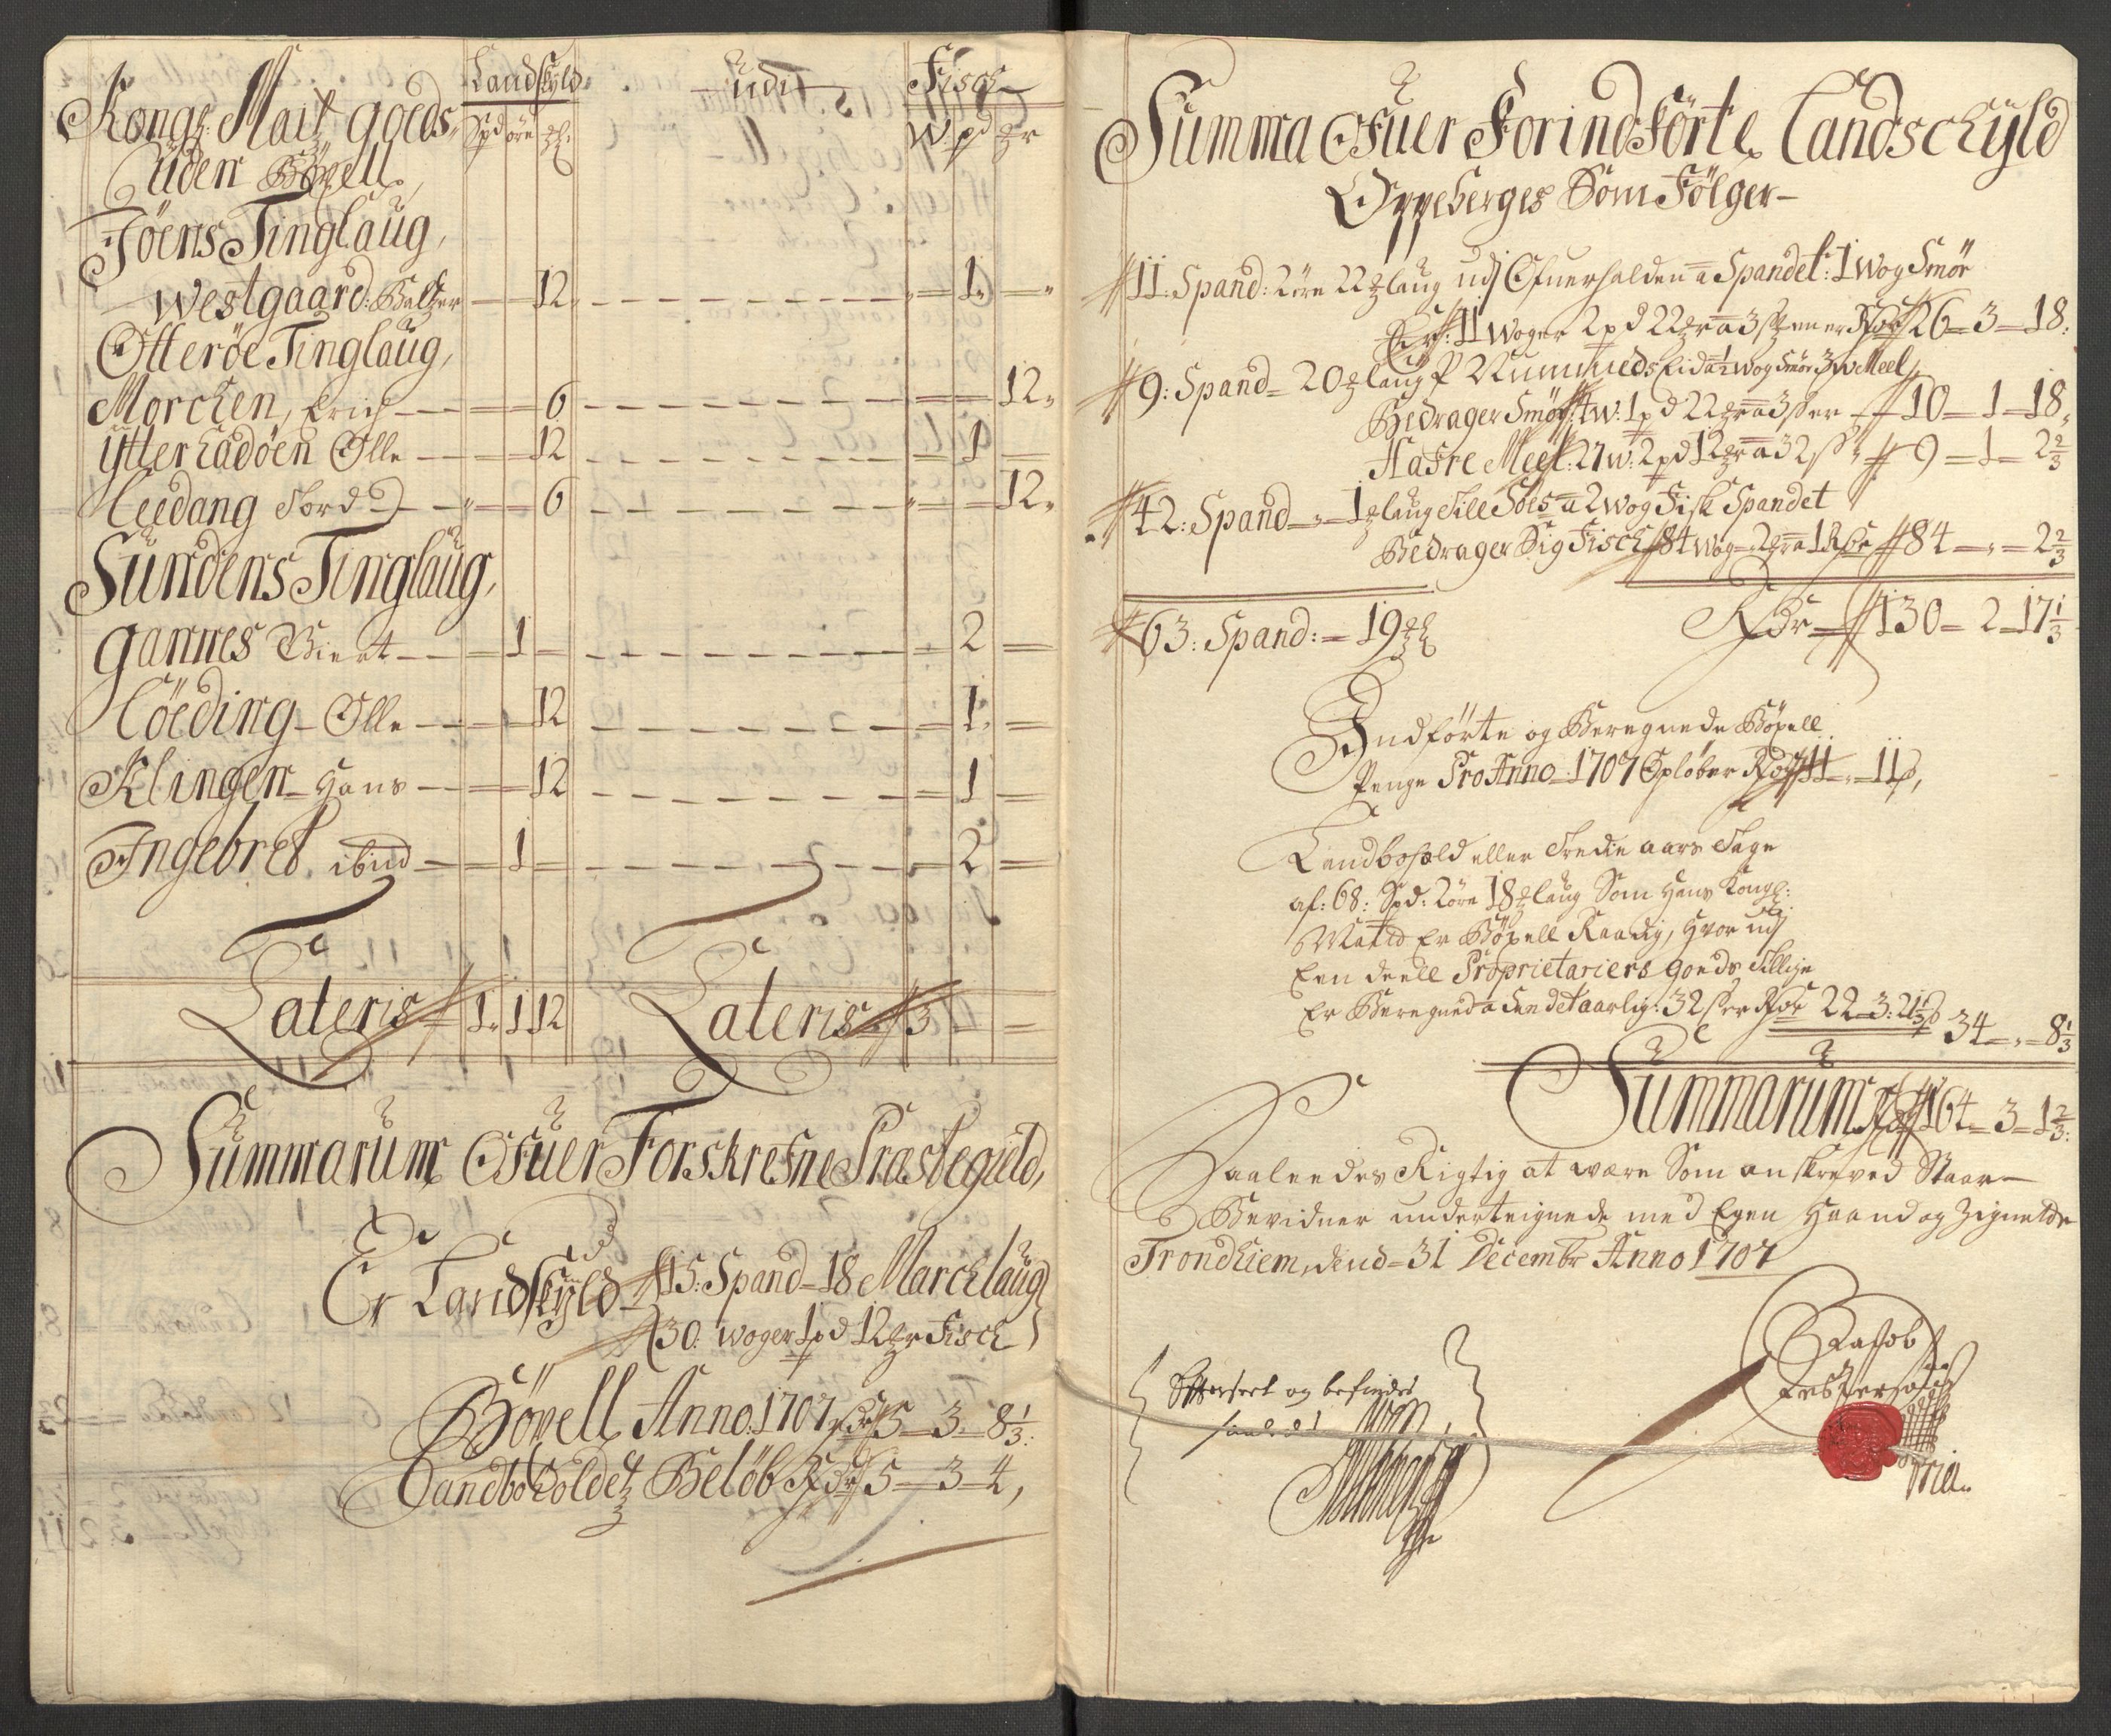 Landskÿld
udi
Fisch
Kongl: Maitz goeds
Spd öre
W. pd
uden Böxell
Föens Tinglaug,
Westgaard: Baltzer — 12 — 1 —
Otteröe Tinglaug,
Morchen, Erich — 6 — 12
Ÿtter Ladöen Olle — 12 — 1 —
Leedang Tord — 6 — 12
Sundens Tinglaug,
Gannes Biert — 1 — 2 —
Löeding Olle — 12 — 1 —
Klingen Hans — 12 — 1 —
Ingebret ibid — 1 — 2 —
Lateris 1 1 12 Lateris 3 —
Summarum Ofuer Forskrefne Præstegield,
Er Landskÿld 15: Spand 18 Marchlaug
30 woger 1 pd 12 Fisch
Böxell Anno 1707 Rdr 5 — 3 — 8 1/3:
Landboholdetz Belöb Rdr 5 — 3 — 4,
Summa Ofuer Forindförte Landschÿld
Oppeberges Som Fölger —
11: Spand: 2 öre 22 laug udj Ofuerhalden a Spandet: 1 Wog Smör
Er: 11 Woger 2 pd 22 a 3 Rdr 26 — 3 — 18:
9: Spand — 20 laug a 1/2 wog Smör 3 w Meel
Bedrager Smör: 4 w: 1 pd 22 a 3 — 10 — 1 — 18
Hafre Meel: 27 w: 2 pd 12 a 32 s 9 — 1 — 2 2/3
42: Spand — 1 laug a 2 wog Fisk Spandet
Bedrager Sig Fisch 84 wog — 84 — 2 2/3
63: Spand: — 19 Rdr 130 — 2 — 17 1/3
Indförte og Beregnede Böxell
Penge Pro Anno 1707 Opløber Rdr 11 — 11 s,
Landbohold eller Tredie aars Tage
af: 68: Spd: 2 öre 18 laug Som Hans Kongl:
Maÿtt Er Böxell Raadig, Hvor udj
Een deell Proprietariers goeds Tillige
Er Beregned a Aarlig: 32 s er Rdr 22 — 3: 21 1/3 s 34 — 8 1/3
Summarum Rdr 164 — 3 — 1 2/3:
Saaleedes Rigtig at være Som anskreved Staar —
Bevidner underteignede med Egen Haand og Zignette
Trondhiem, dend 31 Decembr Anno 1707
Efterseet og befindes
saaledes